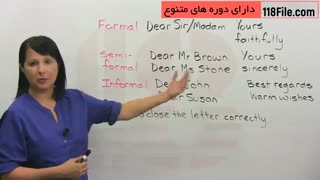 دارای دوره های متنوع
118File.com
Formal Dear Sir/Madam Yours faithfully
Semi-formal Dear Mr Brown Yours
Dear Ms Stone sincerely
Informal De John Best regards
ar Susan Warm wishes
close the letter correctly